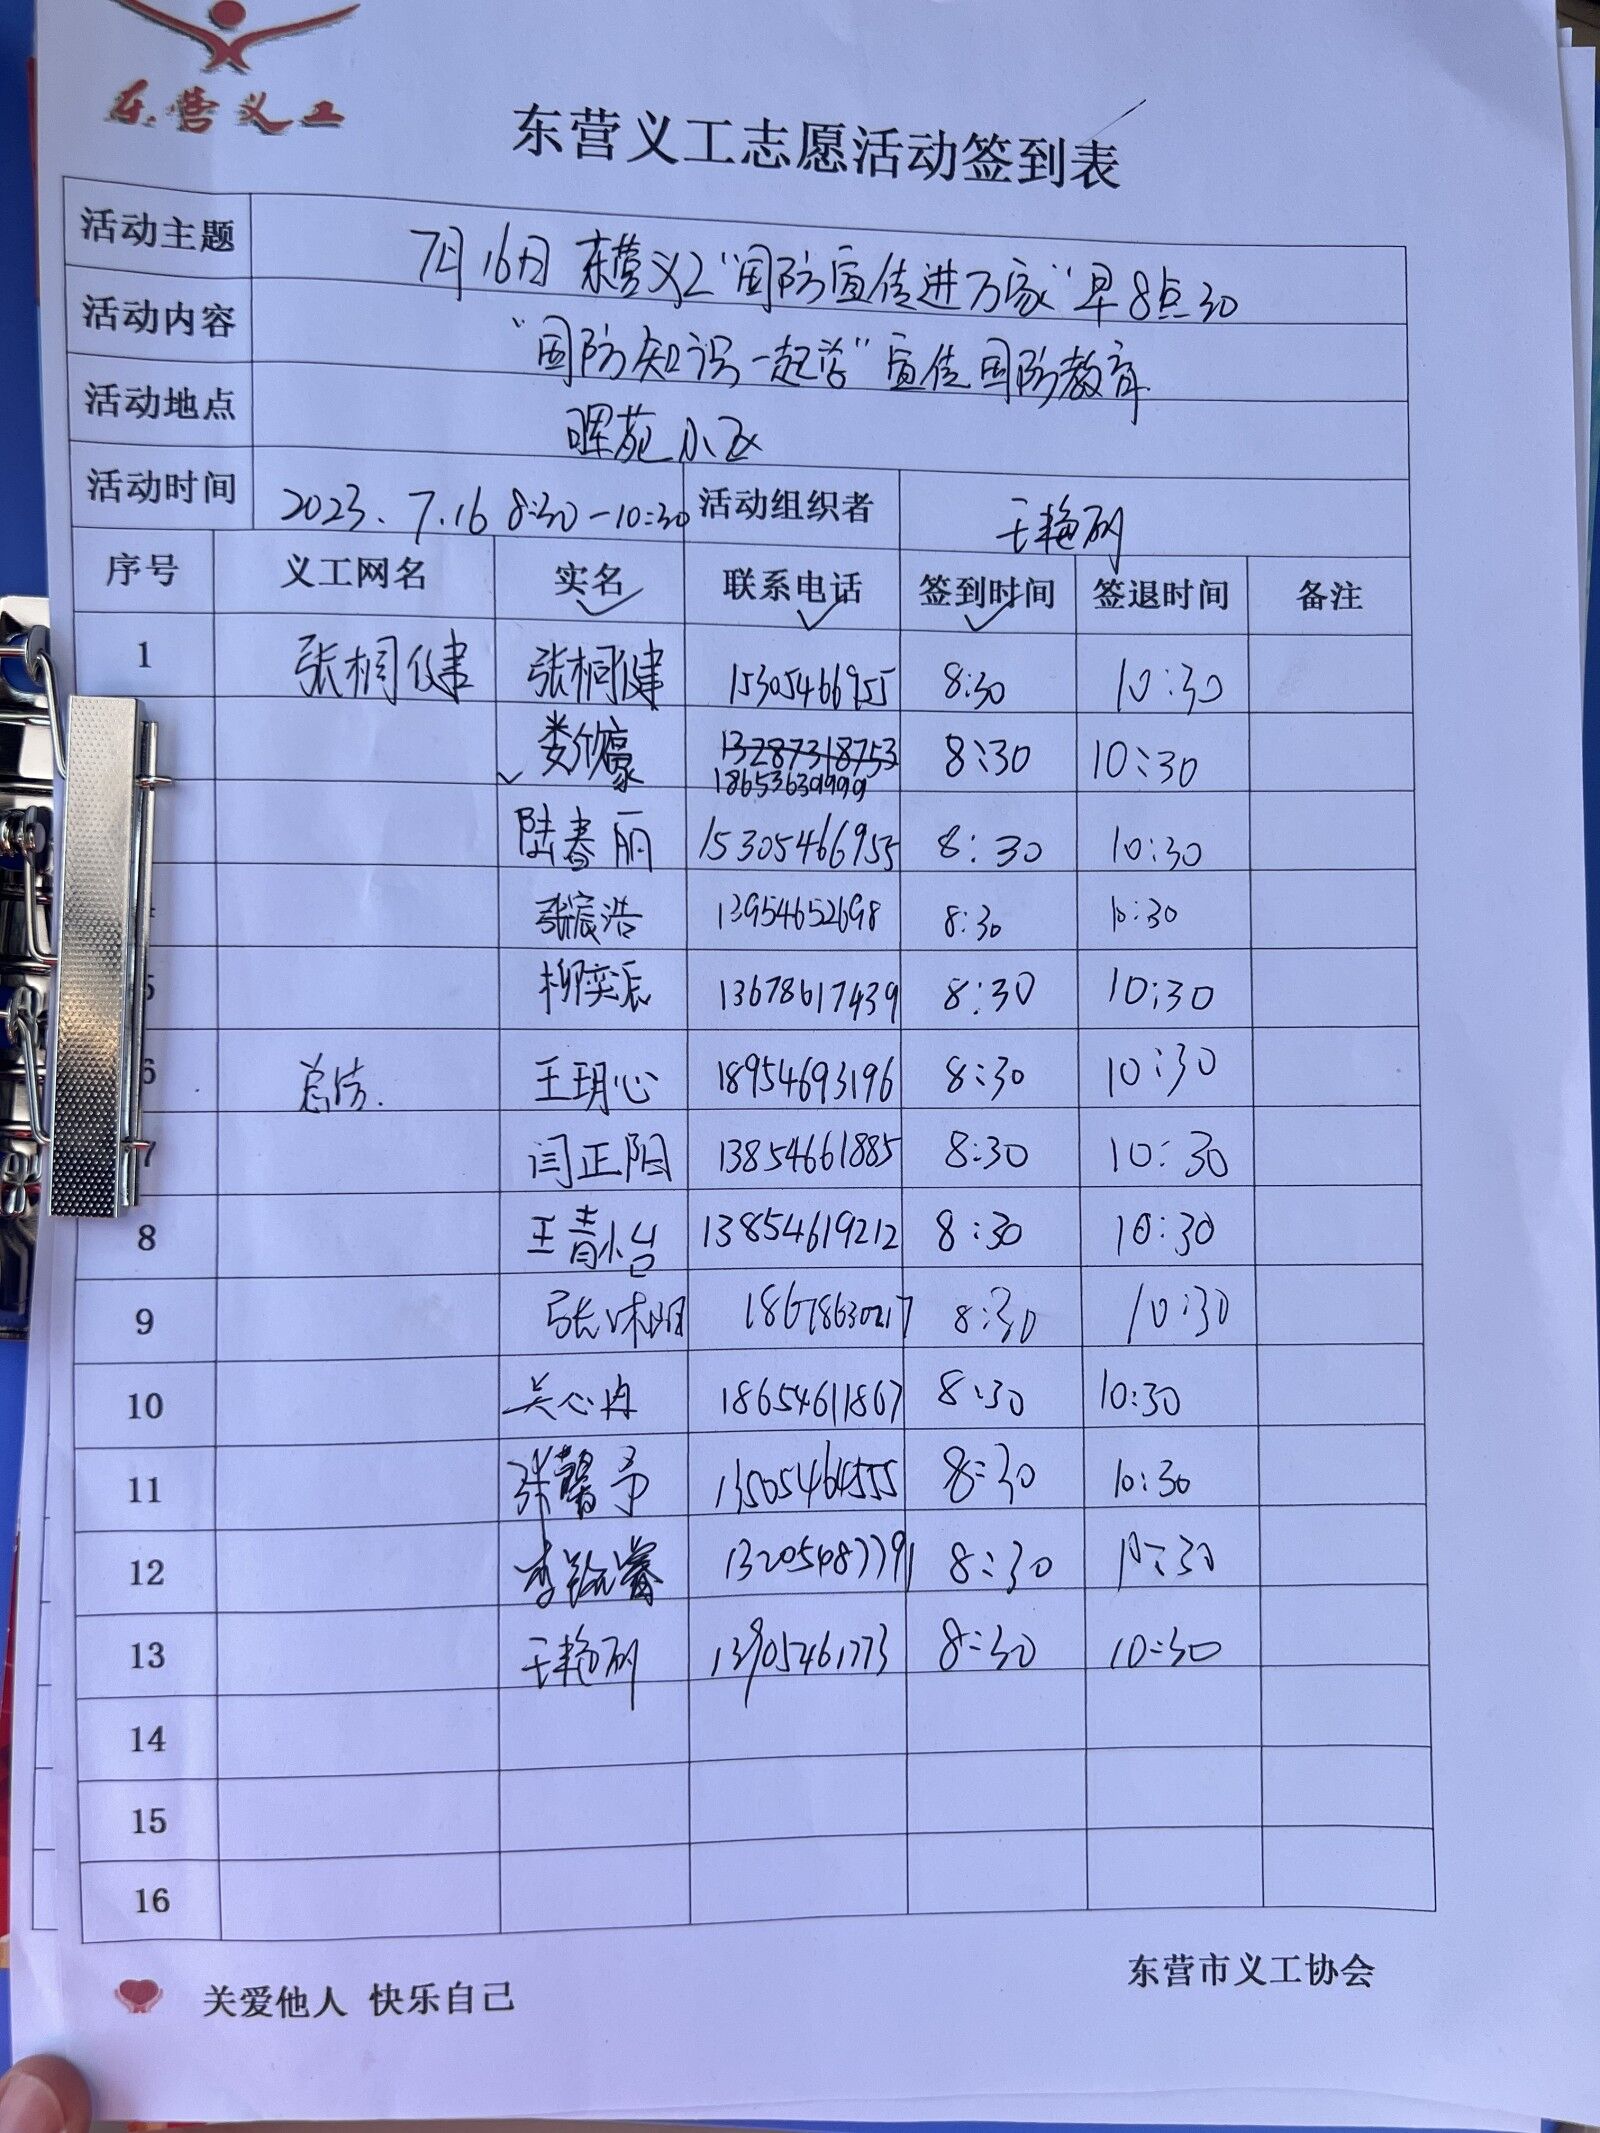 东营义工
东营义工志愿活动签到表
活动主题 7月16日 东营义工“国防宣传进万家”早8点30
活动内容 “国防知识一起学”宣传国防教育
活动地点 晖苑小区
活动时间 2023.7.16 8:30-10:30 活动组织者 王艳丽
序号 义工网名 实名 联系电话 签到时间 签退时间 备注
1 张桐健 张桐健 15305466955 8:30 10:30
娄欣豪 13287318753 8:30 10:30
18653639999
陆春丽 15305466955 8:30 10:30
张宸浩 13954652698 8:30 10:30
5 柳奕辰 13678617439 8:30 10:30
6 总结. 王玥心 18954693196 8:30 10:30
7 闫正阳 13854661885 8:30 10:30
8 王青怡 13854619212 8:30 10:30
9 张沐明 18678630217 8:30 10:30
10 吴心冉 18654611867 8:30 10:30
11 张馨予 13505464555 8:30 10:30
12 李 睿 13205487791 8:30 10:30
13 王艳丽 13905461773 8:30 10:30
14
15
16
关爱他人 快乐自己
东营市义工协会